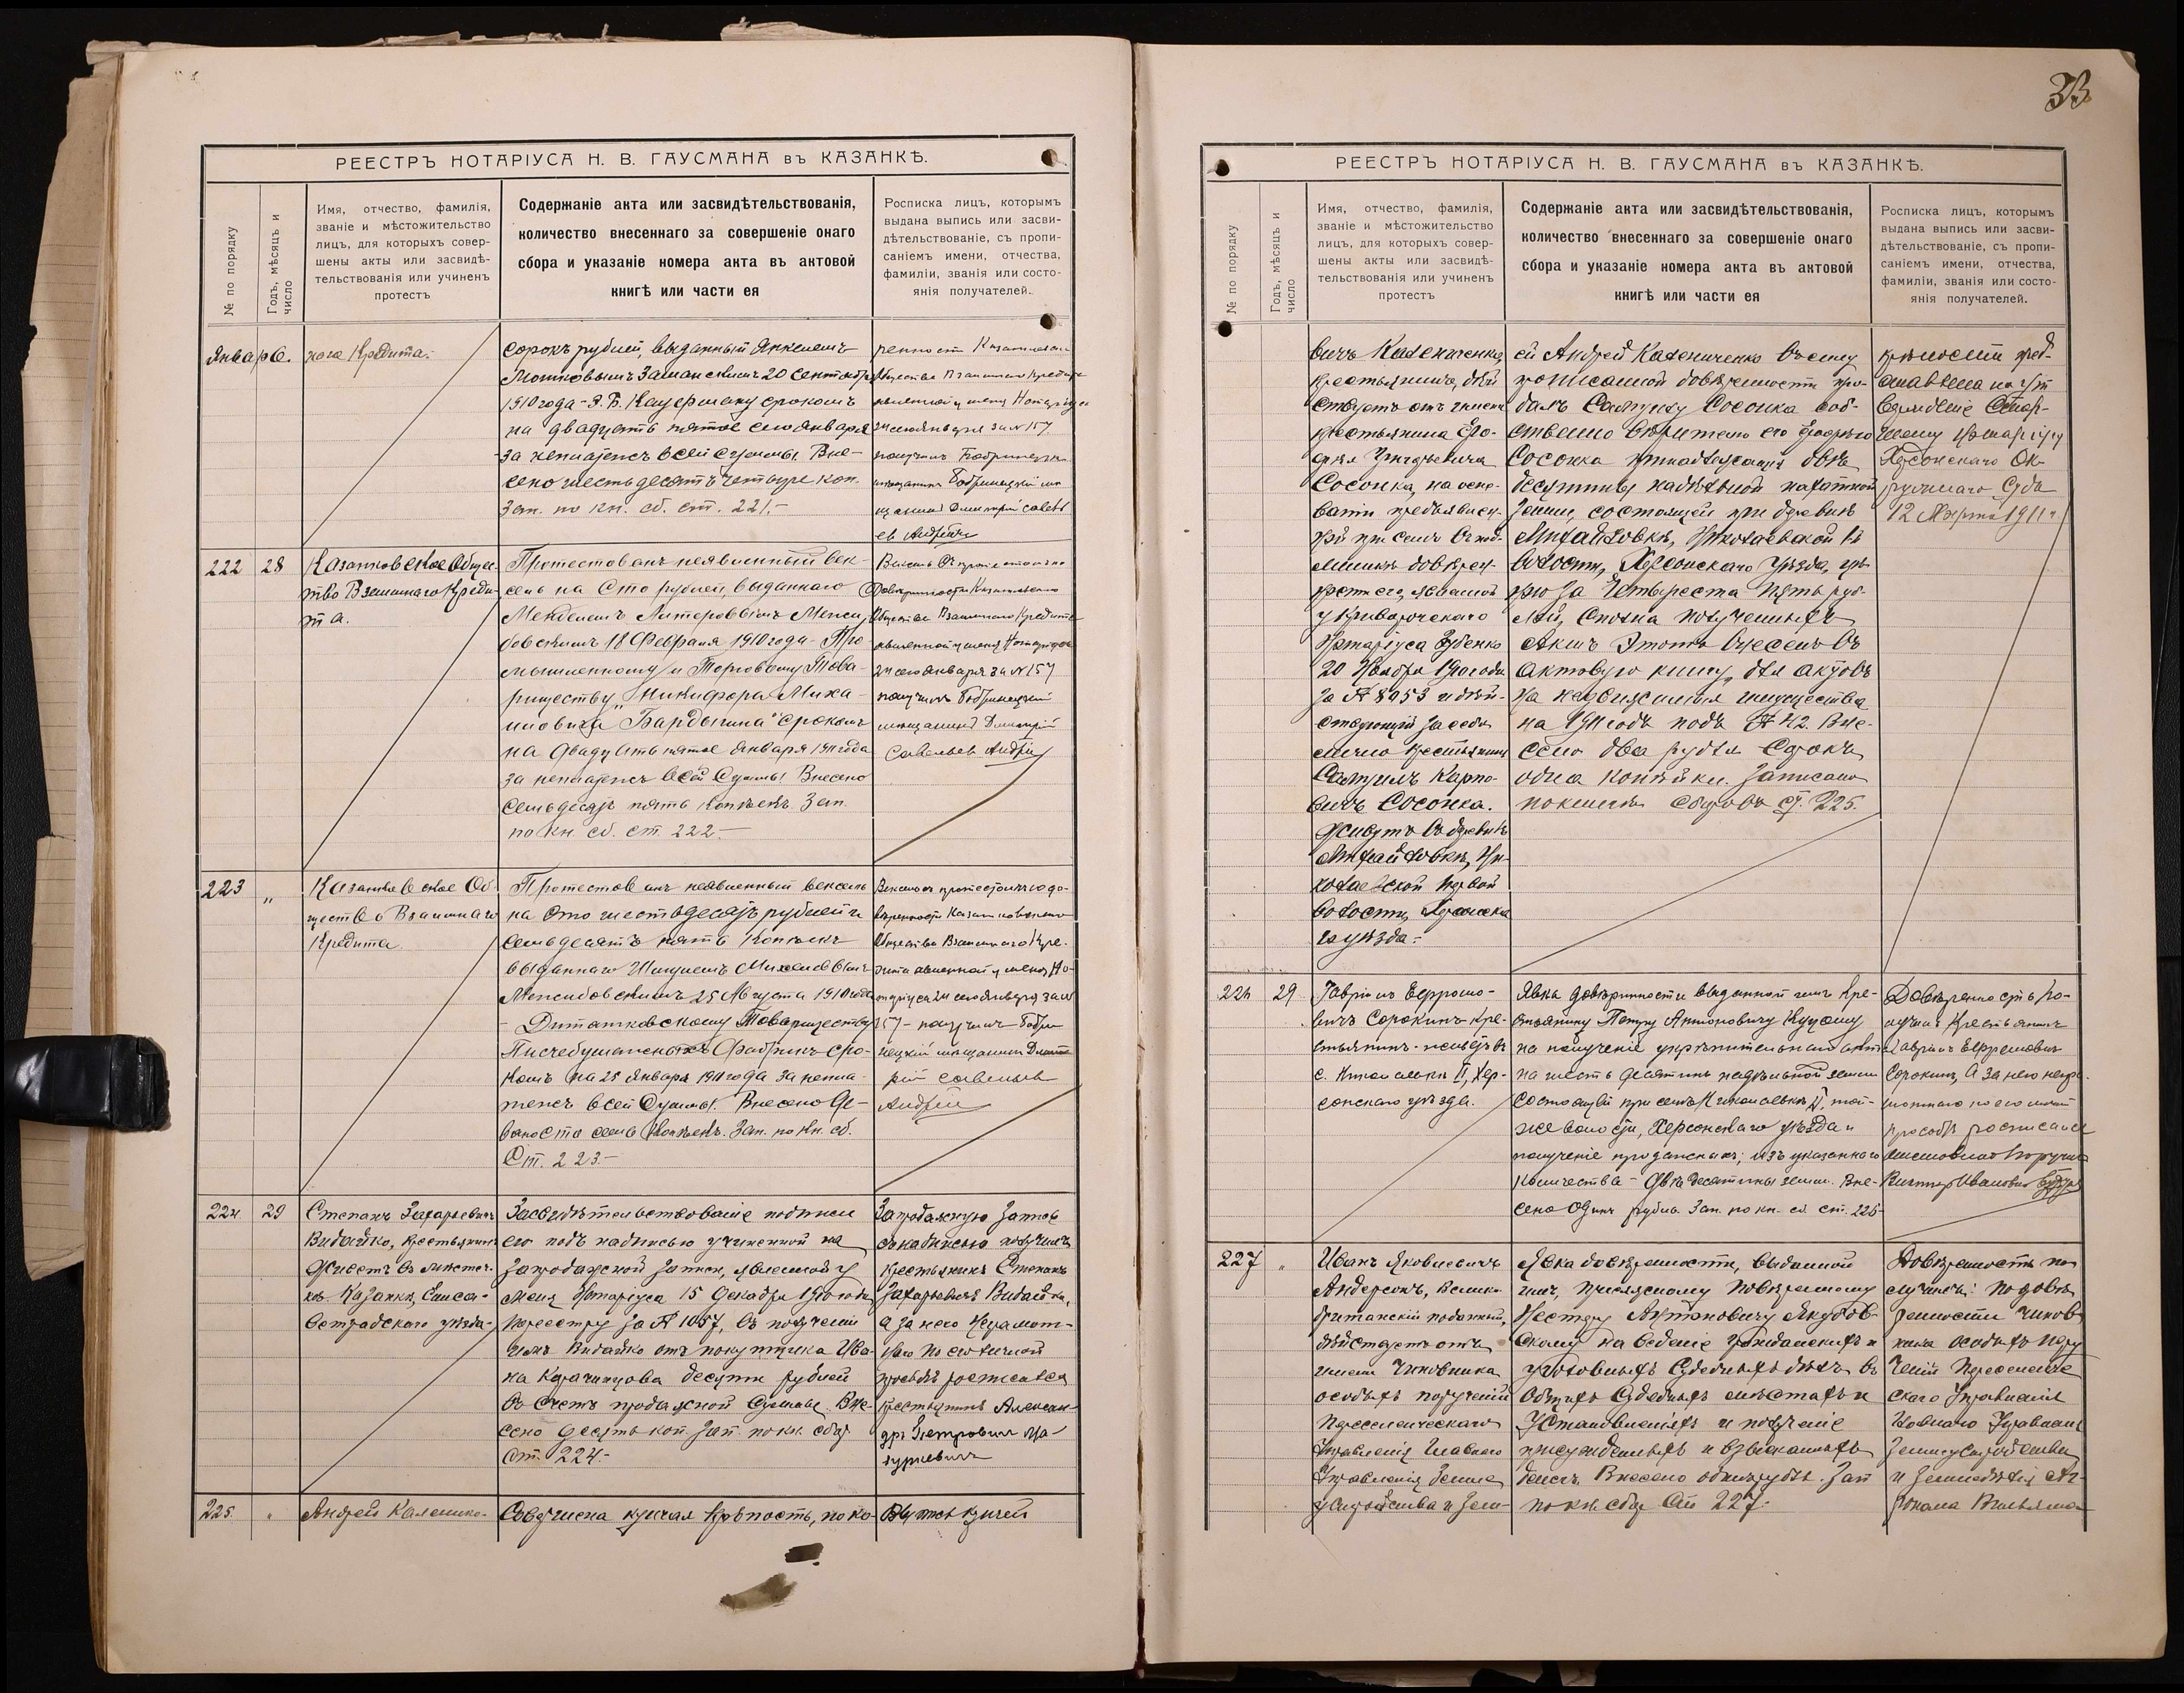 33
РЕЕСТРЪ НОТАРІУСА Н. В. ГАУСМАНА въ КАЗАНКѢ.
№ по порядку
Годъ, мѣсяцъ и число
Имя, отчество, фамилія,
званіе и мѣстожительство
лицъ, для которыхъ совер-
шены акты или засвидѣ-
тельствованія или учиненъ
протестъ
Содержаніе акта или засвидѣтельствованія,
количество внесеннаго за совершеніе онаго
сбора и указаніе номера акта въ актовой
книгѣ или части ея
Росписка лицъ, которымъ
выдана выпись или засви-
дѣтельствованіе, съ пропи-
саніемъ имени, отчества,
фамиліи, званія или состо-
янія получателей.
Январь.
наго Кредита.
сорокъ рублей, выданный Янкелемъ
Мошковымъ Заманскимъ 20 Сентября
1910 года - Э. Б. Кауфману срокомъ
на двадцать пятое сего Января
за неплатежъ всей суммы. Вне-
сено шестьдесятъ четыре коп.
Зап. по кн. сб. ст. 221.-
ренности Казанковскаго
Общества Взаимнаго Кредита
явленной у меня Нотаріуса
24 сего Января за № 157
получилъ Бобринецкій
мѣщанинъ
222
28
Казанковское Общес-
тво Взаимнаго Креди-
та.
Протестованъ неявленный век-
сель на Сто рублей, выданнаго
Менделемъ Литеровымъ Межи-
бовскимъ 18 Февраля 1910 года - Про
мышленному и Торговому Това-
риществу „Никифора Миха-
йловича Бардыгина" срокомъ
на двадцать пятое Января 1911 года
за неплатежъ всей Суммы. Внесено
Семьдесятъ пять Копѣекъ. Зап.
по кн. сб. ст. 222.-
Вексель съ протестомъ по
Довѣренности Казанковскаго
Общества Взаимнаго Кредита
явленной у меня Нотаріуса
24 сего Января за № 157
получилъ Бобринецкій
мѣщанинъ Дмитрій
Савельевъ
223
„
Казанковское Об-
щество Взаимнаго
Кредита
Протестованъ неявленный вексель
на Сто шестьдесятъ рублей и
семьдесятъ пять Копѣекъ
выданнаго Шлемемъ Михелевымъ
Межибовскимъ 25 Августа 1910 года
- Дитатковскому Товариществу
Писчебумажныхъ Фабрикъ сро-
комъ на 25 Января 1911 года за непла-
тежъ всей Суммы. Внесено Де-
вяносто семь Копѣекъ. Зап. по кн. сб.
Ст. 223.-
Вексель съ протестомъ по до-
вѣренности Казанковскаго
Общества Взаимнаго Кре-
дита явленной у меня Но-
таріуса 24 сего Января за №
157 - получилъ Бобри-
нецкій мѣщанинъ Дмит-
рій Савельевъ
224
29
Степанъ Захарьевичъ
Видайко, крестьянинъ
живетъ въ мѣстеч-
кѣ Казанкѣ, Елиса-
ветградскаго уѣзда-
Засвидѣтельствованіе подписи
его подъ надписью учиненной на
запродажной записи, явленной у
меня Нотаріуса 15 Декабря 1910 года
по реестру за № 1057, въ полученіи
имъ Видайко отъ покупщика Ива-
на Карачинцова десяти рублей
въ счетъ продажной суммы. Вне-
сено десять коп. Зап. по кн. сбор.
ст. 224.-
Запродажную запись
съ надписью получилъ
крестьянинъ Степанъ
Захарьевичъ Видайко,
а за него неграмот-
наго по его личной
просьбѣ росписался
крестьянинъ Алексан-
дръ Петровичъ
225.
„
Андрей Каленико-
Совершена купчая крѣпость, по ко-
Выпись купчей
РЕЕСТРЪ НОТАРІУСА Н. В. ГАУСМАНА въ КАЗАНКѢ.
№ по порядку
Годъ, мѣсяцъ и число
Имя, отчество, фамилія,
званіе и мѣстожительство
лицъ, для которыхъ совер-
шены акты или засвидѣ-
тельствованія или учиненъ
протестъ
Содержаніе акта или засвидѣтельствованія,
количество внесеннаго за совершеніе онаго
сбора и указаніе номера акта въ актовой
книгѣ или части ея
Росписка лицъ, которымъ
выдана выпись или засви-
дѣтельствованіе, съ пропи-
саніемъ имени, отчества,
фамиліи, званія или состо-
янія получателей.
вичъ Калениченко,
крестьянинъ, дѣй-
ствуетъ отъ имени
крестьянина Ero-
Сосонка, на осно-
ваніи предъявлен-
ной при семъ
довѣрен-
ности его, явленной
у Криворожскаго
Нотаріуса Зубенко
20 Ноября 1910 года
за № 8053 и дѣй-
ствующій за себя
лично крестьянинъ
Самуилъ Карпо-
вичъ Сосонка.
живутъ въ деревнѣ
Михайловкѣ, Ни-
колаевской Первой
волости, Херсонска-
го уѣзда.-
ей Андрей Калениченко въ силу
прописанной довѣренности про-
далъ Самуилу Сосонка соб-
ственно вѣрителю его
Сосонка принадлежащія двѣ
десятины надѣльной пахатной
земли, состоящей при деревнѣ
Михайловкѣ, Николаевской 1й
волости, Херсонскаго уѣзда, цѣ-
ною за Четыреста пять руб-
лей, сполна полученныхъ
Актъ этотъ внесенъ въ
актовую книгу для актовъ
на недвижимыя имущества
на 1911 годъ подъ № 42. Вне-
сено два рубля сорокъ
одна копѣйки. Записано
по книгѣ сборовъ ст. 225.
крѣпости пред-
ставлена на ут-
вержденіе Стар-
шему Нотаріусу
Херсонскаго Ок-
ружнаго Суда
12 Марта 1911 г.
226
29
Гавріилъ Ефремо-
вичъ Сорокинъ кре-
стьянинъ живетъ въ
с. Николаевкѣ II, Хер-
сонскаго уѣзда.
Явка довѣренности выданной имъ Кре-
стьянину Петру Антоновичу Куцому
на полученіе укрѣпительнаго акта
на шесть десятинъ надѣльной земли
состоящей при селѣ Николаевкѣ II, той-
же волости, Херсонскаго уѣзда и
полученіе изъ указаннаго
количества - Два десятины земли. Вне-
сено Одинъ рубль. Зап. по кн. сб. ст. 226-
Довѣренность по-
лучилъ Крестьянинъ
Гавріилъ Ефремовичъ
Сорокинъ, а за него негра-
мотнаго по его личной
просьбѣ росписался
Викторъ Ивановичъ
227
„
Иванъ Яковлевичъ
Андерсонъ, Велико-
британскій подданный,
дѣйствуетъ отъ
имени Чиновника
особыхъ порученій
Переселенческаго
Управленія Главнаго
Управленія Земле-
устройства и Зем-
Явка довѣренности, выданной
имъ, присяжному повѣренному
Нестору Антоновичу Якубов-
скому на веденіе гражданскихъ и
уголовныхъ судебныхъ дѣлъ въ
Общихъ Судебныхъ мѣстахъ и
Установленіяхъ и полученіе
присужденныхъ и взысканныхъ
денегъ. Внесено одинъ рубль. Зап.
по кн. сбор. Ст. 227.
Довѣренность по-
лучилъ: по довѣ-
ренности Чинов-
ника особыхъ пору-
ченій Переселенче-
скаго Управленія
Главнаго Управленія
Землеустройства
и Земледѣлія Аг-
ронома Вильяма